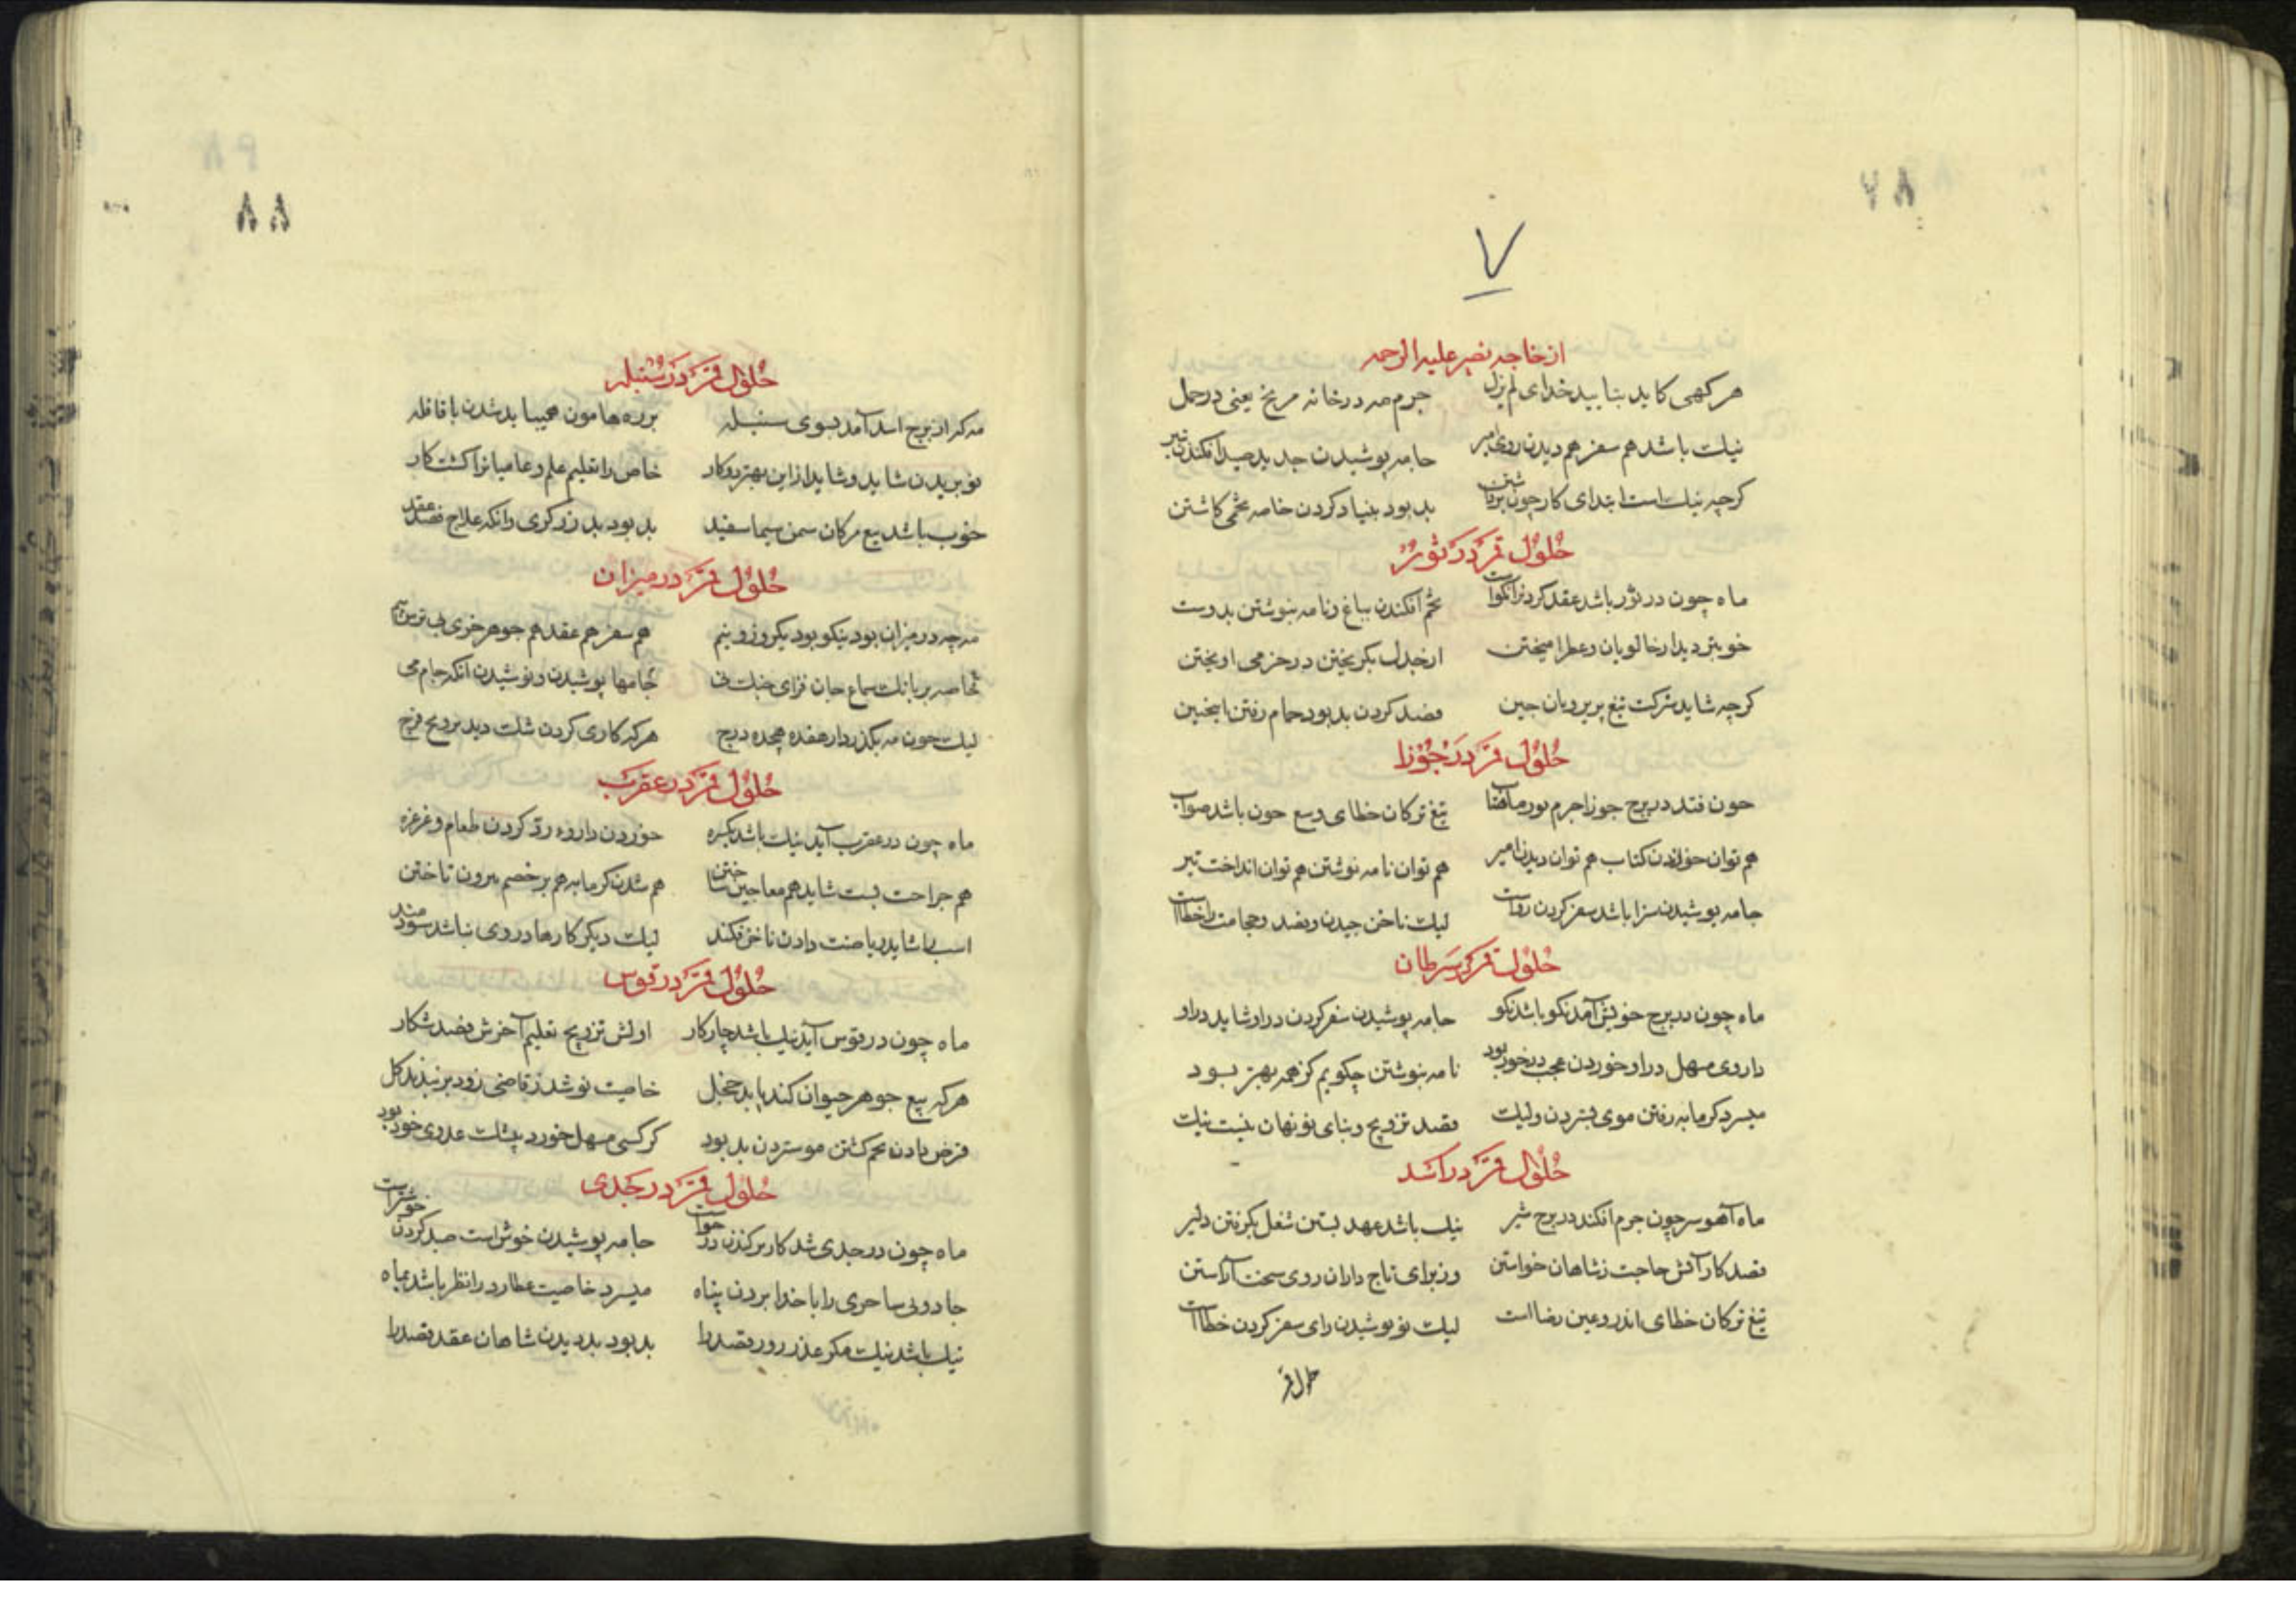 ۸۷
۷
از خاجه نصیر علیه الرحمه
هر گهی کاید بتایید خدای لم یزل جرم مه در خانه مریخ یعنی در حمل
نیک باشد هم سفر هم دیدن روی امیر جامه پوشیدن جدید صید افکندن تیر
کرچه نیک است ابتدای کار چون برداشتن بد بود بنیاد کردن خاصه تخمی کاشتن
حلول قمر در ثور
ماه چون در ثور باشد عقد کردن را نکواست تخم افکندن بباغ و نامه بنوشتن بدوست
خوبتر دیدار خالویان و عطر امیختن از جدل بکریختن در خرمی اویختن
کرچه شاید شرکت تیغ پریرویان چین فصد کردن بد بود حمام رفتن اینچنین
حلول قمر در جوزا
چون فتد در برج جوزا جرم نور ماهتاب تیغ ترکان خطای وبیع چون باشد صواب
هم توان خواندن کتاب هم توان دیدن امیر هم توان نامه نوشتن هم توان انداخت تیر
جامه پوشیدن سزا باشد سفر کردن رواست لیک ناخن چیدن و فصد و حجامت را خطااست
حلول قمر در سرطان
ماه چون در برج خویش آمد نکو باشد نکو جامه پوشیدن سفر کردن در او شاید در او
داروی مسهل در او خوردن عجب در خور بود نامه بنوشتن چکویم کز همه بهتر بود
میسرد کرمابه رفتن موی بستردن ولیک قصد تزویج و بنای نو نهان نیست نیک
حلول قمر در اسد
ماه آهو سر چون جرم افکند در برج شیر نیک باشد عهد بستن شغل بکرفتن دلیر
قصد کار آتش حاجت ز شاهان خواستن وز برای تاج داران روی سخت آراستن
تیغ ترکان خطای اندر و عین رضا است لیک نو پوشیدن رای سفر کردن خطا است
حلول قمر
۸۸
حلول قمر در سنبله
مه کر از برج اسد آمد بسوی سنبله بر ره هامون همیباید شدن با قافله
نو بریدن شاید و شاید از این بهتر دو کار خاص را تعلیم علم و عامیانرا کشت کار
خوب باشد بیع مرکان سمن سیما سفید بد بود بد زرکری وانکه علاج فصد عقد
حلول قمر در میزان
مه چه در میزان بود نیکو بود یکروز و نیم هم سفر هم عقد هم جوهر خری بی ترس و بیم
خاصه بر بانک سماع جان فزای چنک نی جامها پوشیدن و نوشیدن انکه جام می
لیک چون مه بکذرد از هفده هجده درج هر که کاری کردن شک دید بر ویح فرج
حلول قمر در عقرب
ماه چون در عقرب آید نیک باشد یکسره خوردن داروء رد کردن طعام و غرغره
هم جراحت بست شاید هم معاجین ساختن هم شدن کرمابه هم بر خصم بیرون تاختن
اسب را شاید ریاضت دادن ناخن فکند لیک دیکر کارها در وی نباشد سودمند
حلول قمر در قوس
ماه چون در قوس آید نیک باشد چار کار اولش تزویج تعلیم آخرش فصد شکار
هر که بیع جوهر حیوان کند یابد خجل خاصیت نو شد ز قاضی زود بر نبذد کل
قرض دادن تخم کشتن مو ستردن بد بود کر کسی مسهل خورد بیشک عدوی خود بود
حلول قمر در جدی
ماه چون در جدی شد کاربز کندن رواست جامه پوشیدن خوش است صید کردن خوشتر است
جادوئی ساحری را با خدا بردن پناه میسرد خاصیت عطارد را نظر باشد بماه
نیک باشد نیک مکر عذر زور قصد را بد بود بد دیدن شاهان عقد فصد را